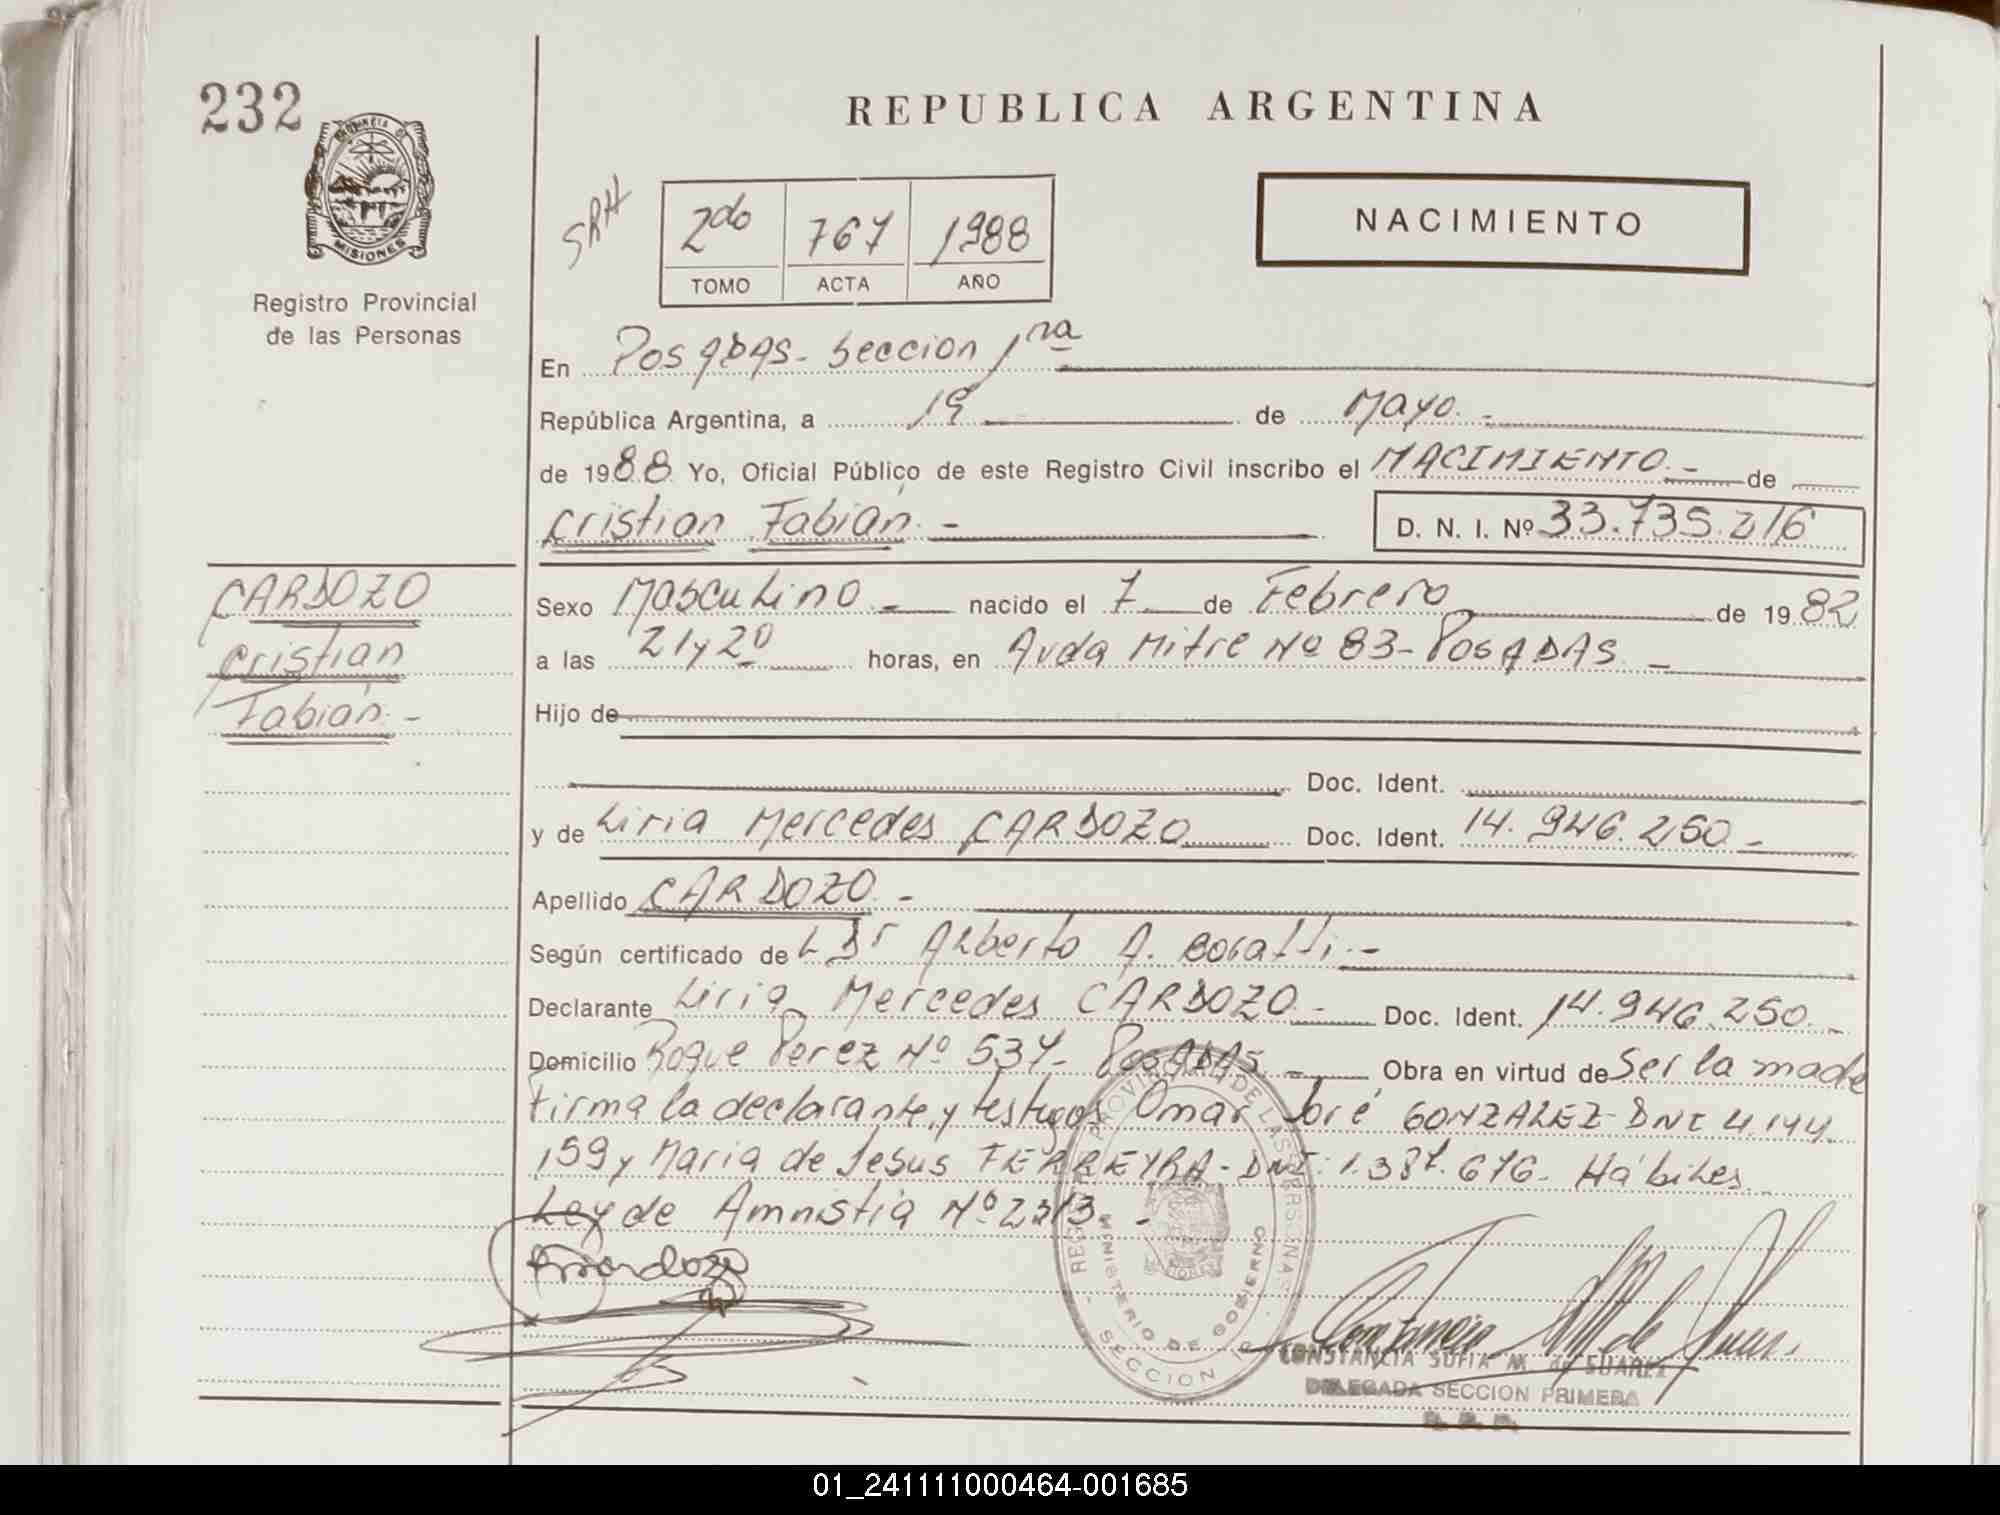 232
REPUBLICA ARGENTINA
PROVINCIA DE
MISIONES
Registro Provincial
de las Personas
SRH
2do 767 1988
TOMO ACTA AÑO
NACIMIENTO
En Posadas - Seccion 1ra
República Argentina, a 19 de Mayo.-
de 1988 Yo, Oficial Público de este Registro Civil inscribo el NACIMIENTO.- de
Cristian Fabián.-
D. N. I. Nº 33.735.216
CARDOZO
Cristian
Fabián.-
Sexo Masculino.- nacido el 7 de Febrero de 1982
a las 21 y 20 horas, en Avda Mitre Nº 83 - Posadas.-
Hijo de
Doc. Ident.
y de Liria Mercedes CARDOZO Doc. Ident. 14.946.250.-
Apellido CARDOZO.-
Según certificado de L Dr Alberto A.
Declarante Liria Mercedes CARDOZO.- Doc. Ident. 14.946.250.-
Domicilio Roque Perez Nº 537 - Posadas.- Obra en virtud de Ser la madre
Firma la declarante, y testigos Omar José GONZALEZ - DNI 4.144.
159 y Maria de Jesus FERREYRA - DNI: 1.387.676 - Hábiles.
Ley de Amnistia Nº 2313.-
REGISTRO PROVINCIAL DE LAS PERSONAS
MINISTERIO DE GOBIERNO
SECCION 1ª
CONSTANCIA SOFIA M. de SUAREZ
DELEGADA SECCION PRIMERA
01_241111000464-001685